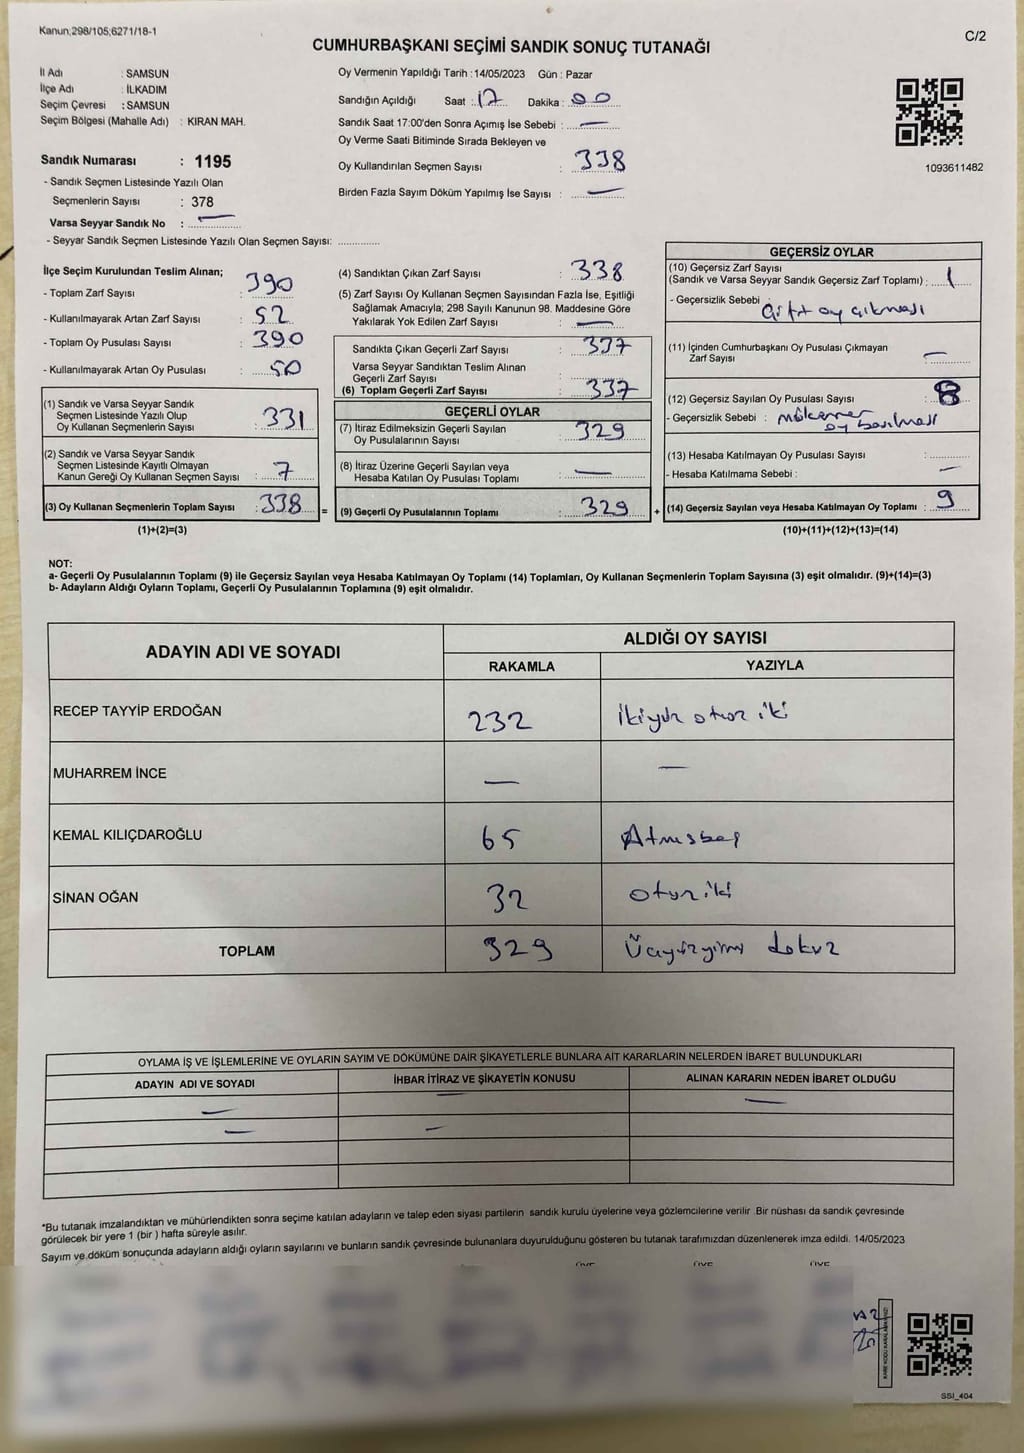 Kanun;298/105;6271/18-1
C/2
CUMHURBAŞKANI SEÇİMİ SANDIK SONUÇ TUTANAĞI
İl Adı : SAMSUN
İlçe Adı : İLKADIM
Seçim Çevresi : SAMSUN
Seçim Bölgesi (Mahalle Adı) : KIRAN MAH.
Sandık Numarası : 1195
- Sandık Seçmen Listesinde Yazılı Olan
Seçmenlerin Sayısı : 378
Varsa Seyyar Sandık No : —
- Seyyar Sandık Seçmen Listesinde Yazılı Olan Seçmen Sayısı: ..............
Oy Vermenin Yapıldığı Tarih : 14/05/2023 Gün : Pazar
Sandığın Açıldığı Saat : 17 Dakika : 00
Sandık Saat 17:00'den Sonra Açımış İse Sebebi : —
Oy Verme Saati Bitiminde Sırada Bekleyen ve
Oy Kullandırılan Seçmen Sayısı : 338
Birden Fazla Sayım Döküm Yapılmış İse Sayısı : —
1093611482
İlçe Seçim Kurulundan Teslim Alınan;
- Toplam Zarf Sayısı : 390
- Kullanılmayarak Artan Zarf Sayısı : 52
- Toplam Oy Pusulası Sayısı : 390
- Kullanılmayarak Artan Oy Pusulası : 50
(1) Sandık ve Varsa Seyyar Sandık
Seçmen Listesinde Yazılı Olup
Oy Kullanan Seçmenlerin Sayısı : 331
(2) Sandık ve Varsa Seyyar Sandık
Seçmen Listesinde Kayıtlı Olmayan
Kanun Gereği Oy Kullanan Seçmen Sayısı : 7
(3) Oy Kullanan Seçmenlerin Toplam Sayısı : 338 =
(1)+(2)=(3)
(4) Sandıktan Çıkan Zarf Sayısı : 338
(5) Zarf Sayısı Oy Kullanan Seçmen Sayısından Fazla İse, Eşitliği
Sağlamak Amacıyla; 298 Sayılı Kanunun 98. Maddesine Göre
Yakılarak Yok Edilen Zarf Sayısı : —
Sandıkta Çıkan Geçerli Zarf Sayısı : 337
Varsa Seyyar Sandıktan Teslim Alınan
Geçerli Zarf Sayısı :
(6) Toplam Geçerli Zarf Sayısı : 337
GEÇERLİ OYLAR
(7) İtiraz Edilmeksizin Geçerli Sayılan
Oy Pusulalarının Sayısı : 329
(8) İtiraz Üzerine Geçerli Sayılan veya
Hesaba Katılan Oy Pusulası Toplamı : —
(9) Geçerli Oy Pusulalarının Toplamı : 329 +
GEÇERSİZ OYLAR
(10) Geçersiz Zarf Sayısı
(Sandık ve Varsa Seyyar Sandık Geçersiz Zarf Toplamı) : 1
- Geçersizlik Sebebi : Çift oy çıkması
(11) İçinden Cumhurbaşkanı Oy Pusulası Çıkmayan
Zarf Sayısı : —
(12) Geçersiz Sayılan Oy Pusulası Sayısı : 8
- Geçersizlik Sebebi : mükerrer
oy basılması
(13) Hesaba Katılmayan Oy Pusulası Sayısı :
- Hesaba Katılmama Sebebi : —
(14) Geçersiz Sayılan veya Hesaba Katılmayan Oy Toplamı : 9
(10)+(11)+(12)+(13)=(14)
NOT:
a- Geçerli Oy Pusulalarının Toplamı (9) ile Geçersiz Sayılan veya Hesaba Katılmayan Oy Toplamı (14) Toplamları, Oy Kullanan Seçmenlerin Toplam Sayısına (3) eşit olmalıdır. (9)+(14)=(3)
b- Adayların Aldığı Oyların Toplamı, Geçerli Oy Pusulalarının Toplamına (9) eşit olmalıdır.
ADAYIN ADI VE SOYADI
ALDIĞI OY SAYISI
RAKAMLA YAZIYLA
RECEP TAYYİP ERDOĞAN 232 İkiyüz otuz iki
MUHARREM İNCE — —
KEMAL KILIÇDAROĞLU 65 Atmışbeş
SİNAN OĞAN 32 otuziki
TOPLAM 329 Üçyüzyirmi dokuz
OYLAMA İŞ VE İŞLEMLERİNE VE OYLARIN SAYIM VE DÖKÜMÜNE DAİR ŞİKAYETLERLE BUNLARA AİT KARARLARIN NELERDEN İBARET BULUNDUKLARI
ADAYIN ADI VE SOYADI İHBAR İTİRAZ VE ŞİKAYETİN KONUSU ALINAN KARARIN NEDEN İBARET OLDUĞU
— — —
— —
*Bu tutanak imzalandıktan ve mühürlendikten sonra seçime katılan adayların ve talep eden siyasi partilerin sandık kurulu üyelerine veya gözlemcilerine verilir .Bir nüshası da sandık çevresinde
görülecek bir yere 1 (bir ) hafta süreyle asılır.
Sayım ve döküm sonucunda adayların aldığı oyların sayılarını ve bunların sandık çevresinde bulunanlara duyurulduğunu gösteren bu tutanak tarafımızdan düzenlenerek imza edildi. 14/05/2023
ÜYE ÜYE ÜYE
SSİ_404